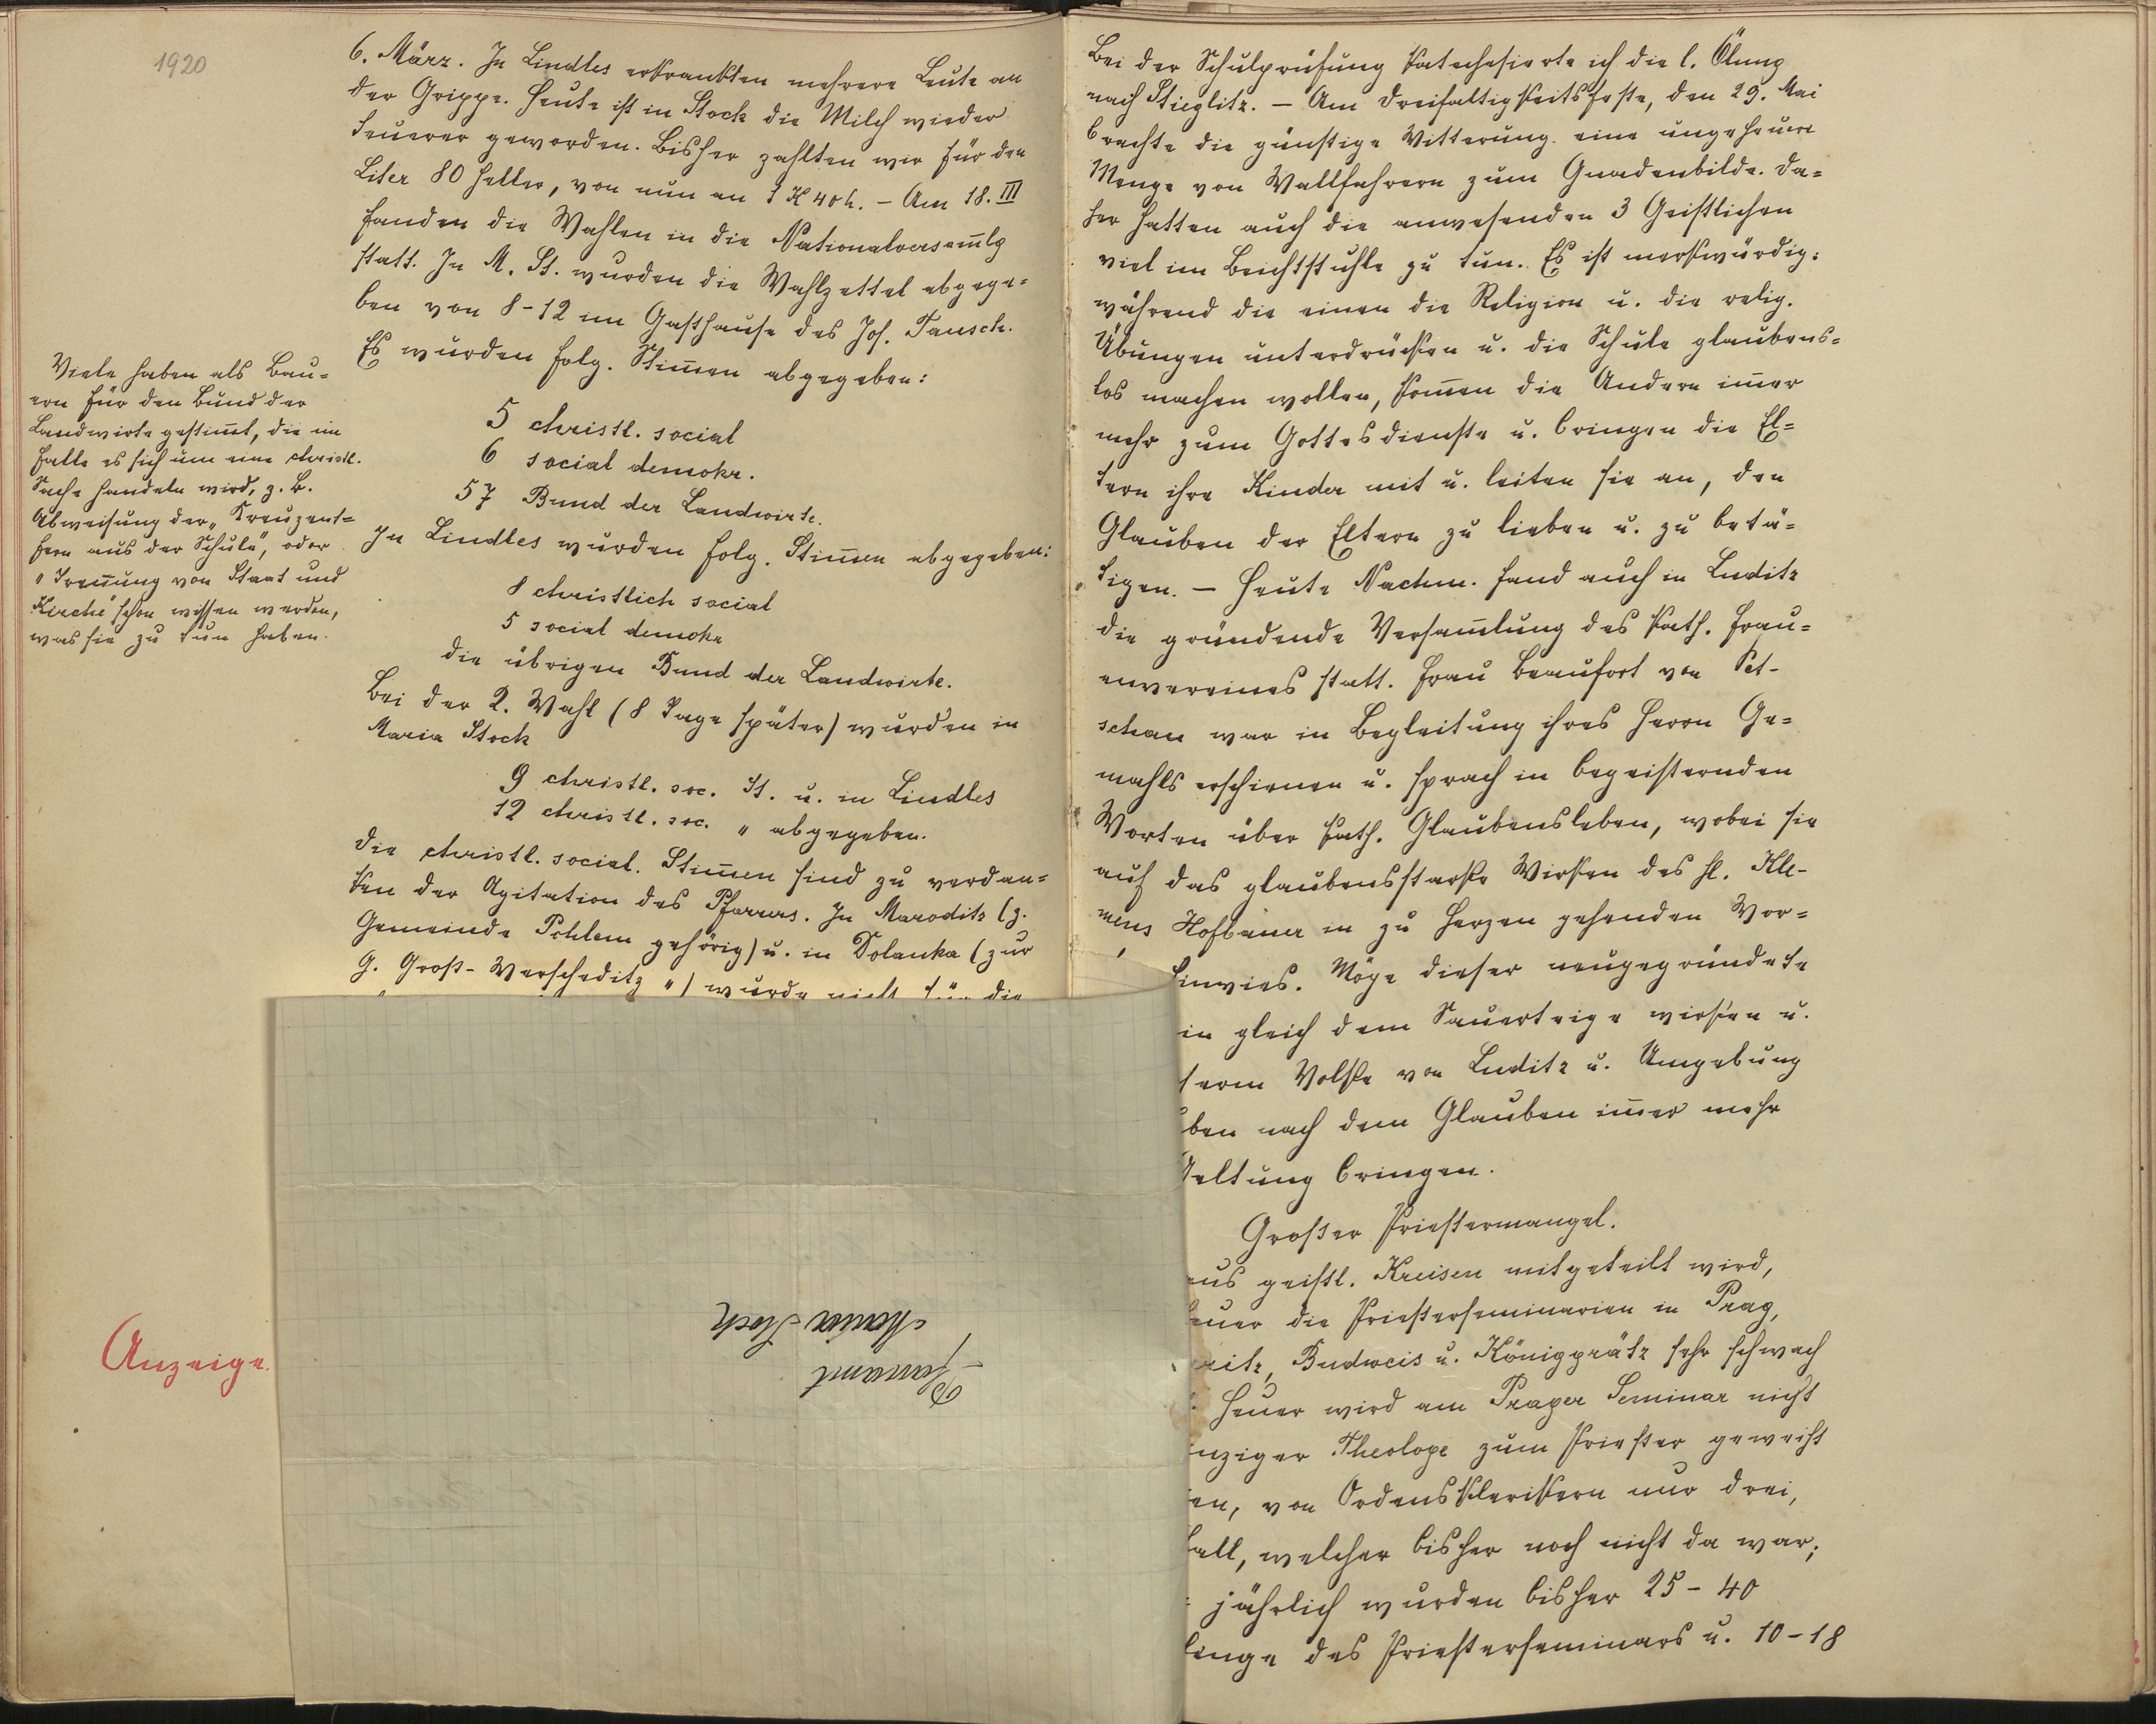 1920
6. März. In Lindles erkrankten mehrere Leute an
der Grippe. Heute ist in Stock die Milch wieder
teuerer geworden. Bisher zahlten wir für den
Liter 80 Heller, von nun an 1 K 40 h. – Am 18. III
fanden die Wahlen in die Nationalversam̅lg
statt. In M. St. wurden die Wahlzettel abgege=
ben von 8-12 im Gasthause des Jos. Tausch.
Es wurden folg. Stim̅en abgegeben:
5 christl. social
6 social demokr.
57 Bund der Landwirte.
In Lindles wurden folg. Stim̅en abgegeben:
8 christlich social
5 social demokr
die übrigen Bund der Landwirte.
Bei der 2. Wahl (8 Tage später) wurden in
Maria Stock
9 christl. soc. St. u. in Lindles
12 christl. soc. " abgegeben.
Die christl. social. Stim̅en sind zu verdan=
ken der Agitation des Pfarrers. In Maroditz (z.
Gemeinde Pohlem gehörig) u. in Dolanka (zur
G. Groß-Werscheditz ") wurde nicht für die
Viele haben als Bau=
ern für den Bund der
Landwirte gestim̅t, die im
Falle es sich um eine christl.
Sache handeln wird, z. B.
Abweisung der „Kreuzent=
fern aus der Schule", oder
"Tren̅ung von Staat und
Kirche" schon wissen werden,
was sie zu tun haben.
Anzeige.
Pfarramt
Maria Stock
Bei der Schulprüfung katechesierte ich die l. Ölung
nach Stieglitz. – Am Dreifaltigkeitsfeste, den 29. Mai
brachte die günstige Witterung eine ungeheuere
Menge von Wallfahrern zum Gnadenbilde. Da=
her hatten auch die anwesenden 3 Geistlichen
viel im Beichtstuhle zu tun. Es ist merkwürdig:
während die einen die Religion u. die relig.
Übungen unterdrücken u. die Schule glaubens=
los machen wollen, kom̅en die Andern im̅er
mehr zum Gottesdienste u. bringen die El=
tern ihre Kinder mit u. leiten sie an, den
Glauben der Eltern zu lieben u. zu betä=
tigen. – Heute Nachm. fand auch in Luditz
die gründende Versam̅lung des kath. Frau=
envereines statt. Frau Beaufort von Pet-
schau war in Begleitung ihres Herrn Ge=
mahls erschienen u. sprach in begeisternden
Worten über kath. Glaubensleben, wobei sie
auf das glaubensstarke Wirken des hl. Kle-
mens Hofbauer in zu Herzen gehenden Wor=
hinwies. Möge dieser neugegründete
in gleich dem Sauerteige wirken u.
serm Volke von Luditz u. Umgebung
ben nach dem Glauben im̅er mehr
Geltung bringen.
Großer Priestermangel.
aus geistl. Kreisen mitgeteilt wird,
heuer die Priesterseminarien in Prag,
ritz, Budweis u. Königgrätz sehr schwach
Heuer wird am Prager Seminar nicht
inziger Theologe zum Priester geweiht
en, von Ordensklerikern nur drei,
Fall, welcher bisher noch nicht da war;
jährlich wurden bisher 25-40
linge des Priesterseminars u. 10-18